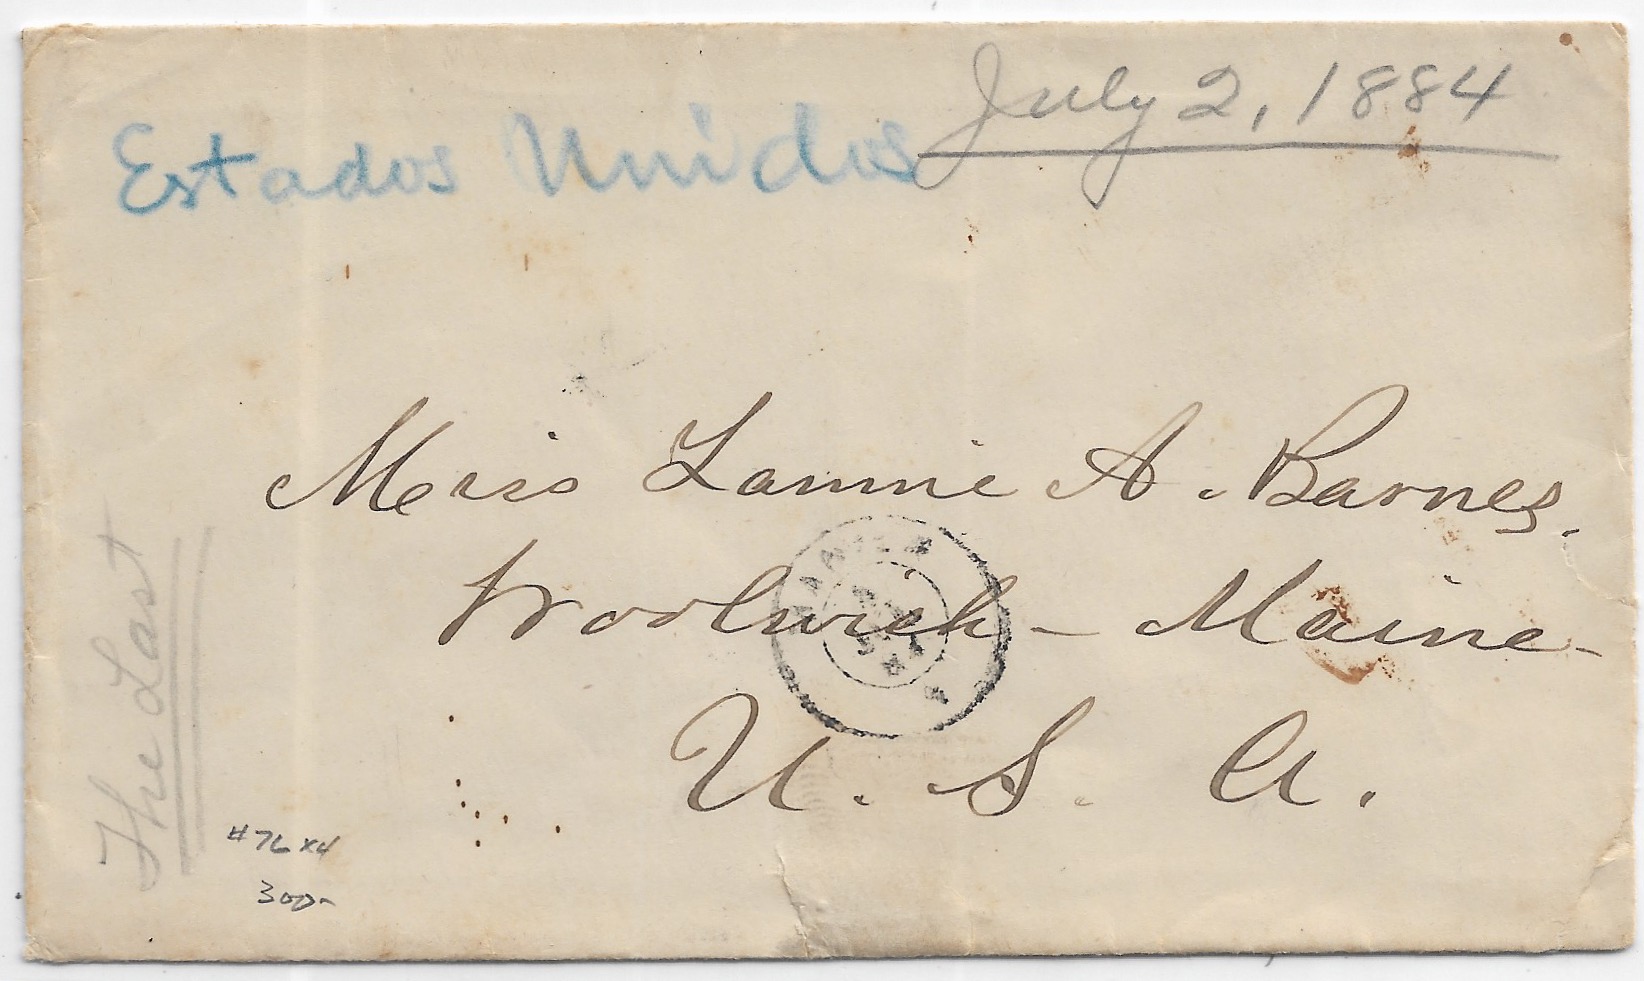 July 2, 1884
Estados Unidos
Miss Lannie A. Barnes.
Woolwich - Maine -
U. S. A.
The Last
#76 x4
300-